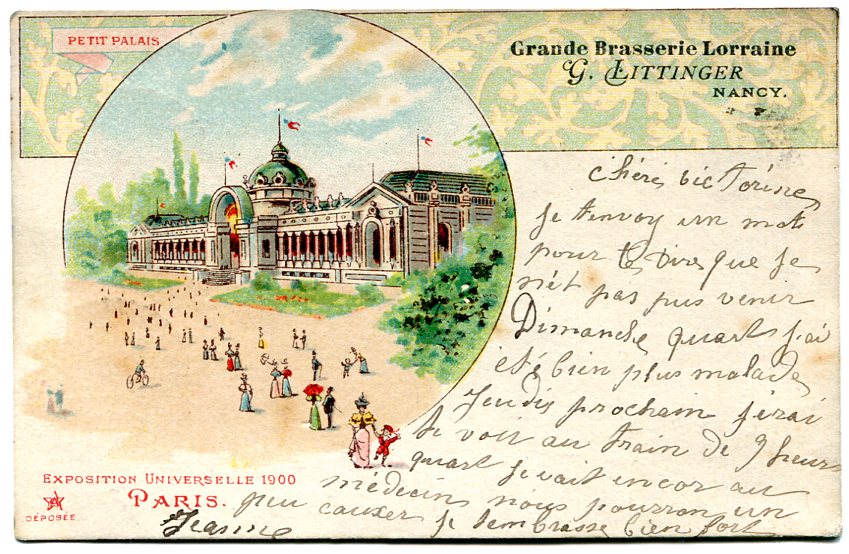 PETIT PALAIS
Grande Brasserie Lorraine
G. LITTINGER
NANCY.
chère victorine
Je tenvoy un mot
pour te dire que je
nét pas pus venir
Dimanche quart j'ai
été bien plus malade
Jeudis prochain j'irai
te voit au train de 9 heurs
quart je vait encor au
médecin nous pourron un
peu causer je tembrasse bien fort
Jeanne
EXPOSITION UNIVERSELLE 1900
PARIS.
DÉPOSÉE